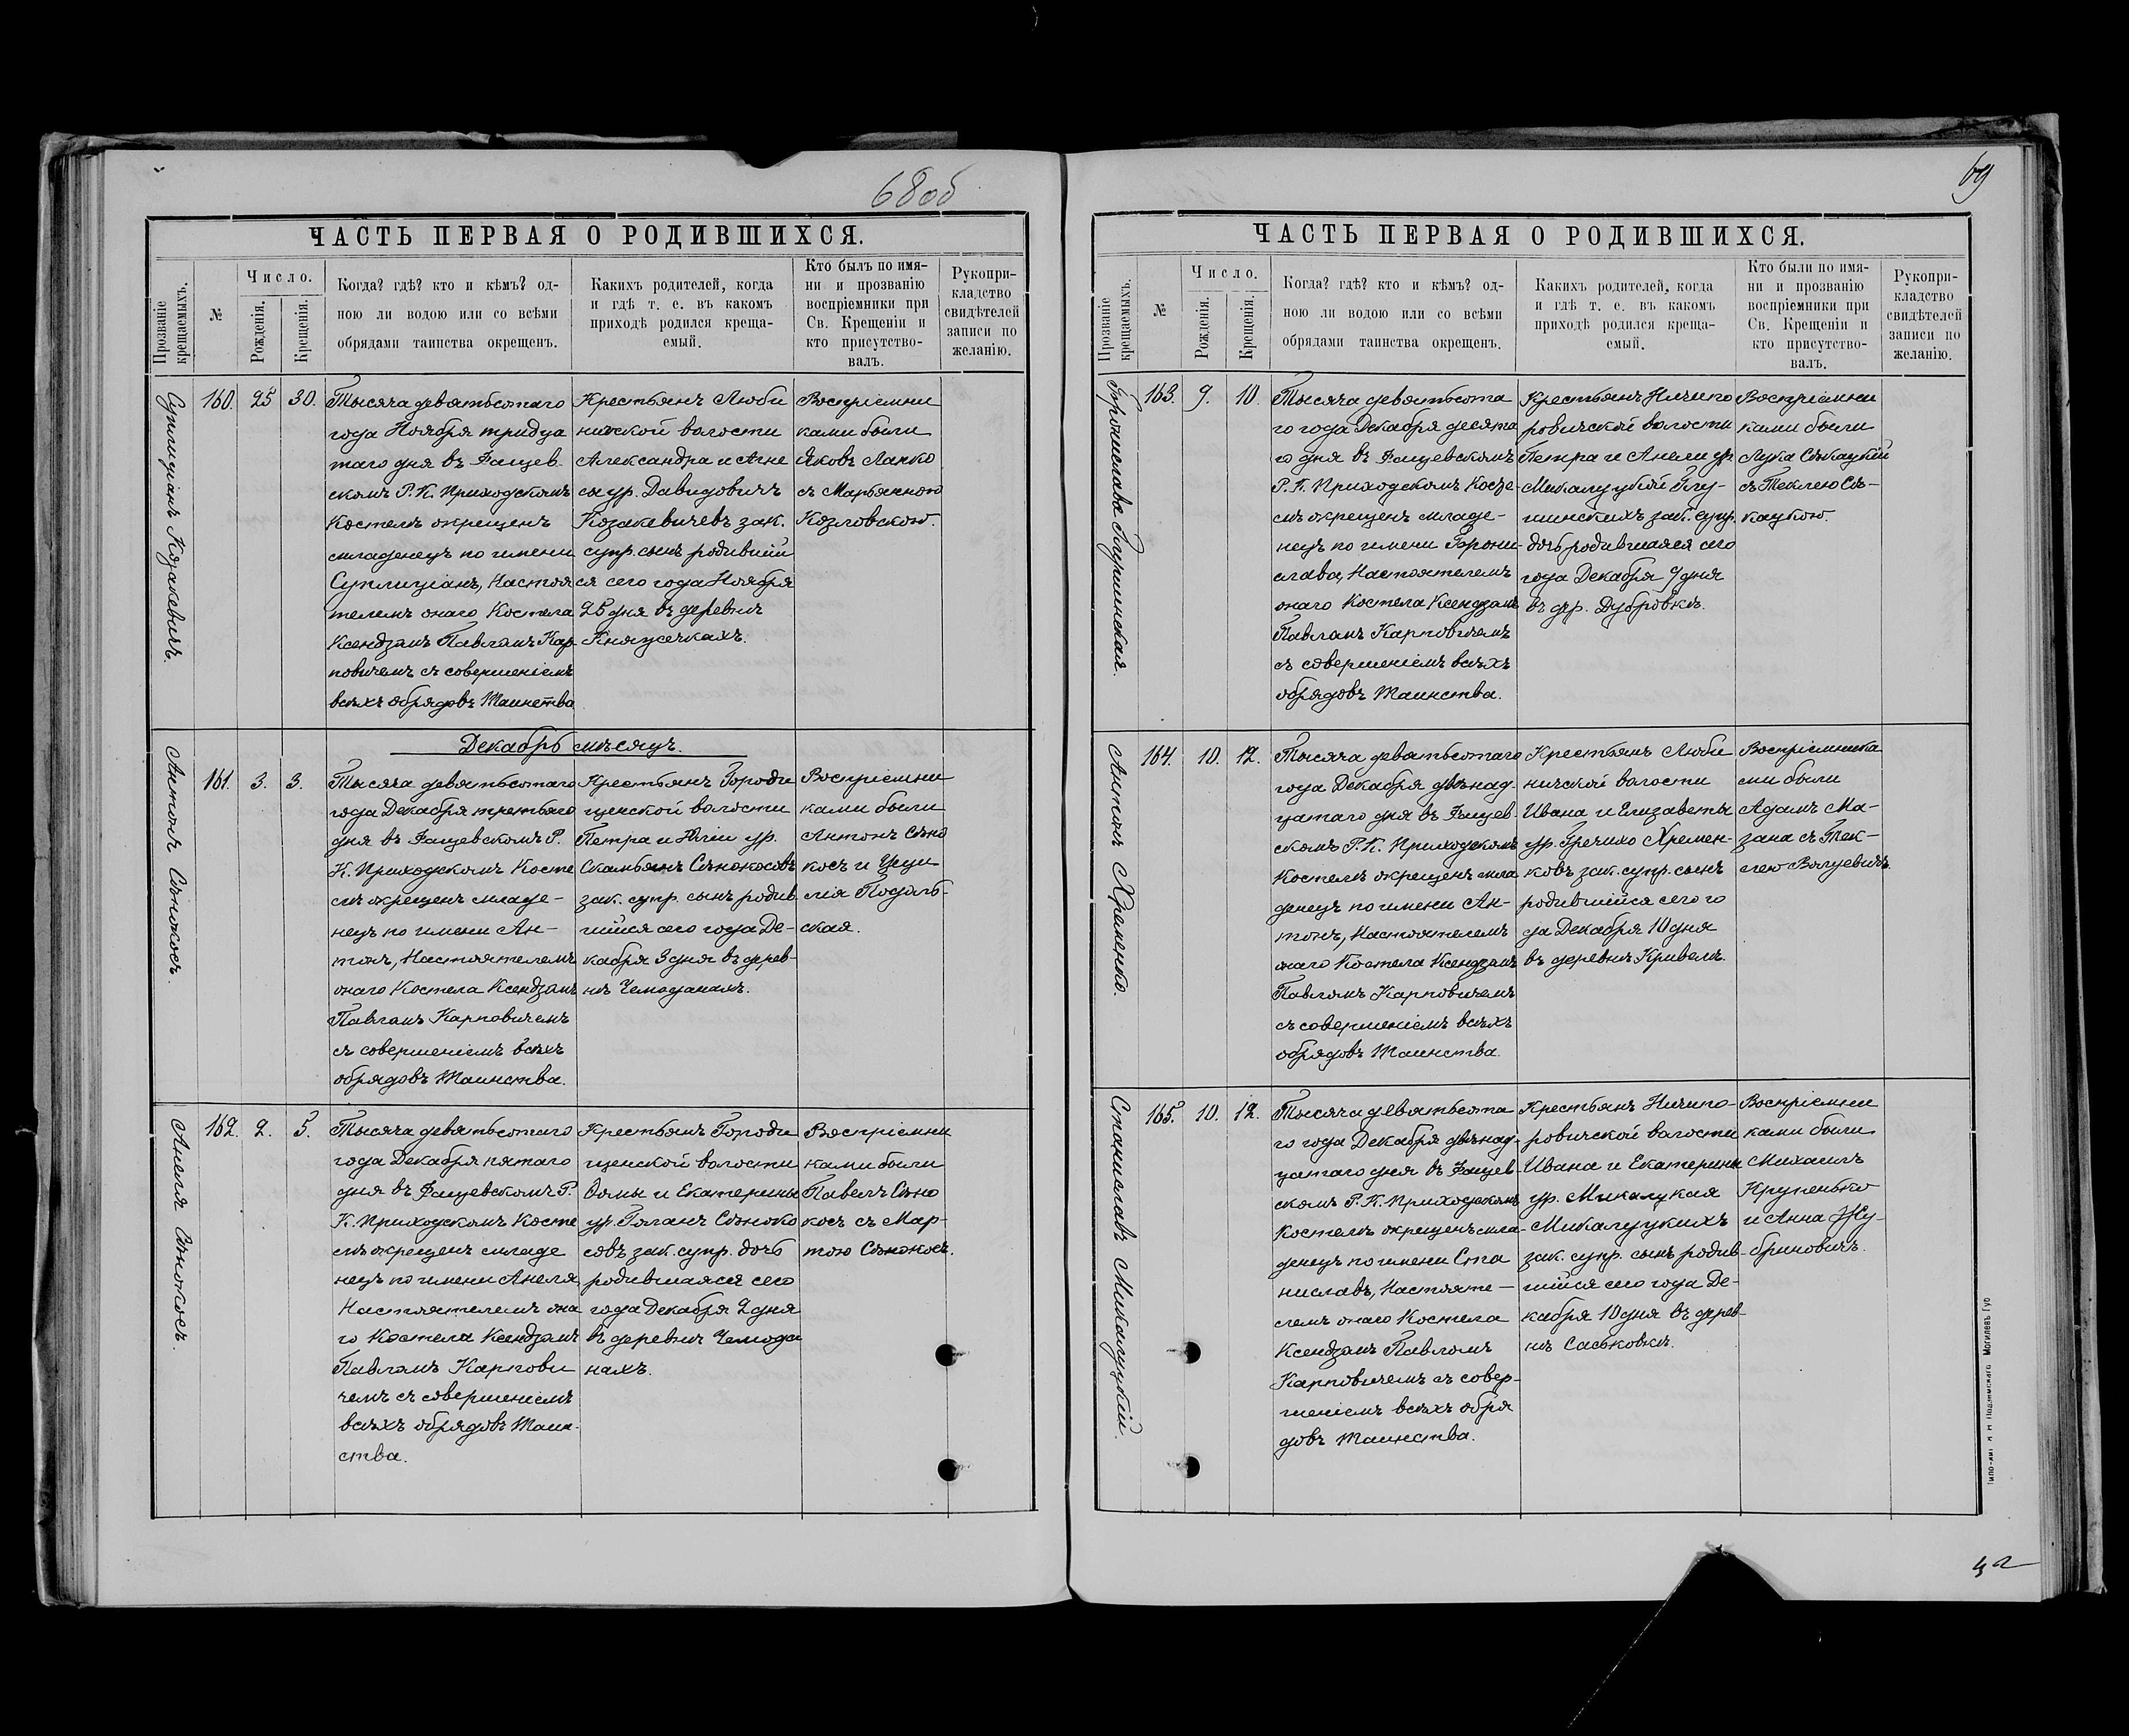 68об
ЧАСТЬ ПЕРВАЯ О РОДИВШИХСЯ.
Прозваніе крещаемыхъ.
№
Число.
Рожденія.
Крещенія.
Когда? гдѣ? кто и кѣмъ? од-
ною ли водою или со всѣми
обрядами таинства окрещенъ.
Какихъ родителей, когда
и гдѣ т. е. въ какомъ
приходѣ родился креща-
емый.
Кто былъ по имя-
ни и прозванію
воспріемники при
Св. Крещеніи и
кто присутство-
валъ.
Рукопри-
кладство
свидѣтелей
записи по
желанію.
Суплиціанъ Козакевичъ.
160.
25
30.
Тысяча девятьсотаго
года Ноября тридца
таго дня въ Фащев-
скомъ Р. К. Приходскомъ
Костелѣ окрещенъ
младенецъ по имени
Суплиціанъ, Настоя
телемъ онаго Костела
Ксендзомъ Павломъ Кар
повичемъ съ совершеніемъ
всѣхъ обрядовъ Таинства
Крестьянъ Люби
ничской волости
Александра и Агне
сы ур. Давидовичъ
Козакевичевъ зак.
супр. сынъ родившій
ся сего года Ноября
25 дня въ деревнѣ
Княжечкахъ.
Воспріемни
ками были
Яковъ Лапко
съ Марьянною
Козловскою.
Декабрь мѣсяцъ.
Антонъ Сѣнокосъ.
161.
3.
3.
Тысяча девятьсотаго
года Декабря третьяго
дня въ Фащевскомъ Р.
К. Приходскомъ Косте
лѣ окрещенъ младе-
нецъ по имени Ан-
тонъ, Настоятелемъ
онаго Костела Ксендзомъ
Павломъ Карповичемъ
съ совершеніемъ всѣхъ
обрядовъ Таинства.
Крестьянъ Городи
щенской волости
Петра и Юліи ур.
Сѣнокосовъ
зак. супр. сынъ родив-
шійся сего года Де-
кабря 3 дня въ дерев-
нѣ Чемоданахъ.
Воспріемни
ками были
Антонъ Сѣно
косъ и Цеци
лія Подоль-
ская.
Анеля Сѣнокосъ.
162.
2.
5.
Тысяча девятьсотаго
года Декабря пятаго
дня въ Фащевскомъ Р.
К. Приходскомъ Косте
лѣ окрещенъ младе
нецъ по имени Анеля,
Настоятелемъ она
го Костела Ксендзомъ
Павломъ Карпови
чемъ съ совершеніемъ
всѣхъ обрядовъ Таин-
ства.
Крестьянъ Городи
щенской волости
Ѳомы и Екатерины
ур. Голанъ Сѣноко
совъ зак. супр. дочь
родившаяся сего
года Декабря 2 дня
въ деревнѣ Чемода
нахъ.
Воспріемни
ками были
Павелъ Сѣно
косъ съ Мар-
тою Сѣнокосъ.
69
ЧАСТЬ ПЕРВАЯ О РОДИВШИХСЯ.
Прозваніе крещаемыхъ.
№
Число.
Рожденія.
Крещенія.
Когда? гдѣ? кто и кѣмъ? од-
ною ли водою или со всѣми
обрядами таинства окрещенъ.
Какихъ родителей, когда
и гдѣ т. е. въ какомъ
приходѣ родился креща-
емый.
Кто были по имя-
ни и прозванію
воспріемники при
Св. Крещеніи и
кто присутство-
валъ.
Рукопри-
кладство
свидѣтелей
записи по
желанію.
163.
9.
10.
Тысяча девятьсота
го года Декабря десята
го дня въ Фащевскомъ
Р. К. Приходскомъ Косте-
лѣ окрещенъ младе-
нецъ по имени Брони-
слава, Настоятелемъ
онаго Костела Ксендзомъ
Павломъ Карповичемъ
съ совершеніемъ всѣхъ
обрядовъ Таинства.
Крестьянъ Ничипо
ровичской волости
Петра и Анели ур.
шинскихъ зак. супр.
дочь родившаяся сего
года Декабря 9 дня
въ дер. Дубровкѣ.
Воспріемни
ками были
Лука Сѣкацкій
съ Теклею Сѣ-
кацкою.
Антонъ Хременко.
164.
10.
12.
Тысяча девятьсотаго
года Декабря двѣнад-
цатаго дня въ Фащев-
скомъ Р. К. Приходскомъ
Костелѣ окрещенъ мла
денецъ по имени Ан-
тонъ, Настоятелемъ
онаго Костела Ксендзомъ
Павломъ Карповичемъ
съ совершеніемъ всѣхъ
обрядовъ Таинства.
Крестьянъ Люби
ничской волости
Ивана и Елизаветы
ур. Гречихо Хремен-
ковъ зак. супр. сынъ
родившійся сего го
да Декабря 10 дня
въ деревнѣ Кривелѣ.
Воспріемника
ми были
Адамъ Ма-
зана съ Тек-
лею Валуевичъ.
Станиславъ Микалуцкій.
165.
10.
12.
Тысяча девятьсота
го года Декабря двѣнад-
цатаго дня въ Фащев-
скомъ Р. К. Приходскомъ
Костелѣ окрещенъ мла-
денецъ по имени Ста
ниславъ, Настояте-
лемъ онаго Костела
Ксендзомъ Павломъ
Карповичемъ съ совер-
шеніемъ всѣхъ обря
довъ Таинства.
Крестьянъ Ничипо-
ровичской волости
Ивана и Екатерины
ур. Микалуцкая
Микалуцкихъ
зак. супр. сынъ родив-
шійся сего года Де-
кабря 10 дня въ дерев-
нѣ Саськовкѣ.
Воспріемни
ками были
Михаилъ
Крупенько
и Анна Жу-
бриновичъ.